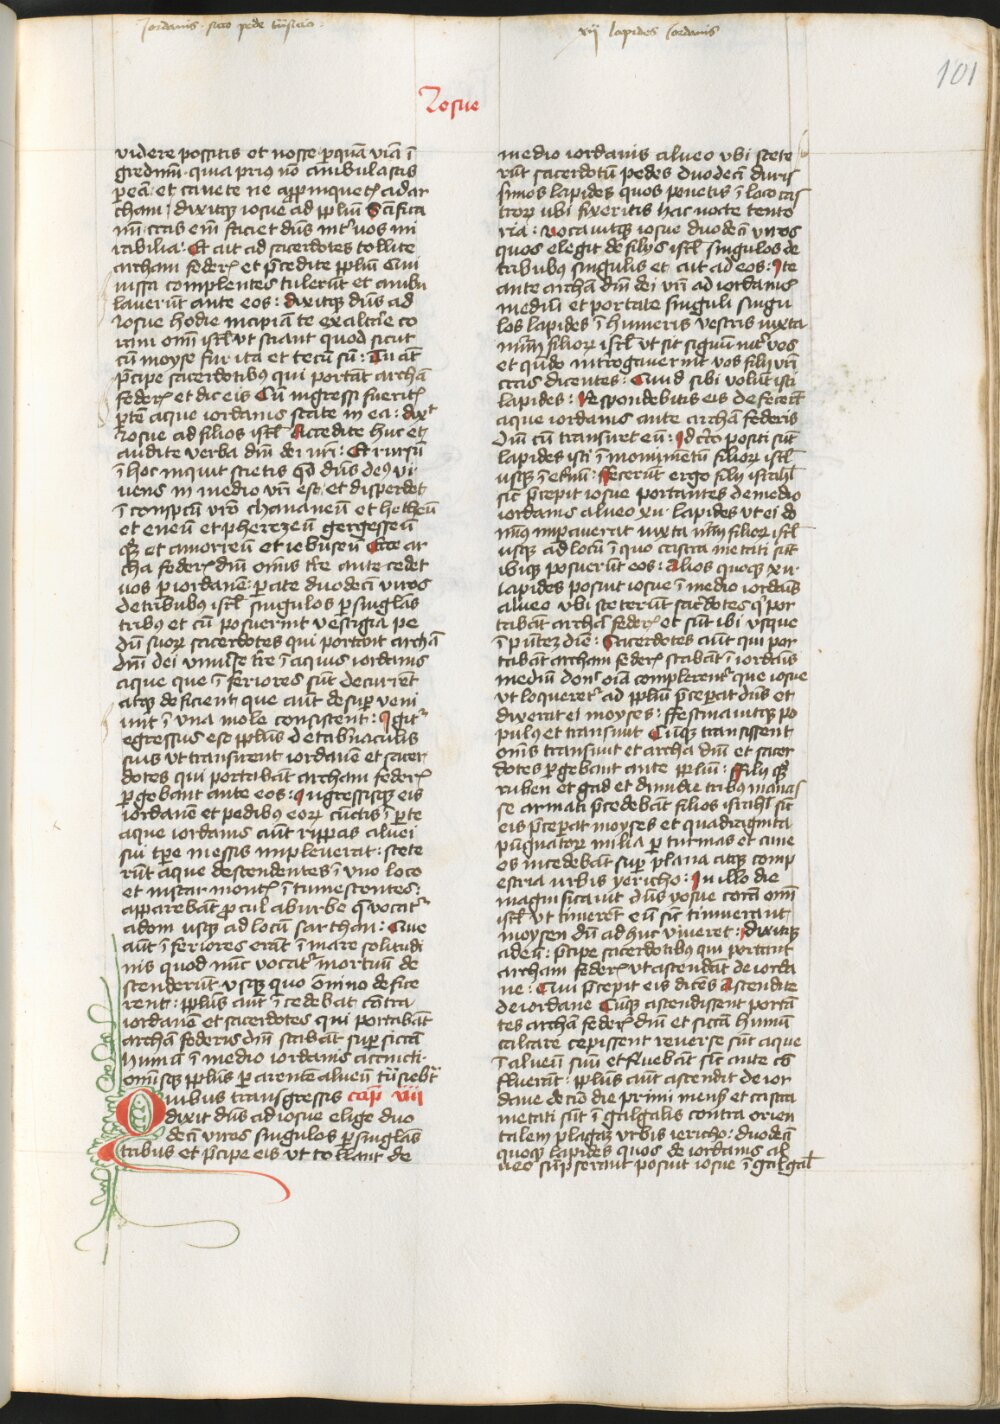 Jordanis sicco pede transitio
xij lapides Jordanis
101
Josue
videre possitis et nosse per quā viā ī
gredimī quia prius nō ambulastis
per eā et cavete ne appropinquetis ad ar
cham dixitque iosue ad pplūm Sctīfica
mī cras enī faciet dns intr vos mi
rabilia Et ait ad sacerdotes tollite
archam federis et precedite pplūm Qui
iussa complentes tulerūt et ambu
laverūt ante eos dixitque dns ad
Josue hodie incipiam te exaltare co
ram omī isrl ut sciant quod sicut
cū moyse fui ita et tecū sū Tu aūt
precipe sacerdotibus qui portāt archā
federis et dic eis Cū ingressi fueritis
partē aque iordanis state in ea dixit
Josue ad filios isrl Accedite huc et
audite verba dnī dei vrī Et rursū
ī hoc inquit scietis quod dns deus vi
vens in medio vrī est et disperdet
ī conspectu vrō chananeū et hetheū
et eveū et pherezeū gergeseū
quoque et amoreū et iebuseū Ecce ar
cha federis dnī omnis terre antecedet
vos per iordanē parate duodecī viros
de tribubus isrl singulos per singlas
tribus et cū posuerint vestigia pe
dū suorum sacerdotes qui portant archā
dnī dei universe terre ī aquis iordanis
aque que īferiores sūt decurrēt
atque deficient que aūt desuper veni
unt ī una mole consistent Igitur
egressus est pplus de tabernaculis
suis ut transirent iordanē et sacer
dotes qui portabāt archam federis
pergebant ante eos Ingressisque eis
iordanē et pedibus eorum tinctis ī parte
aque iordanis aūt rippas alvei
sui tempore messis impleverat stete
rūt aque descendentes ī uno loco
et instar montis ītumescentes
apparebāt procul ab urbe que vocatur
adom usque ad locū sarthan Que
aūt īferiores erāt ī mare solitudi
nis quod nūc vocatur mortuū de
scenderūt usque quo omīno defice
rent pplus aūt īcedebat contra
iordanē et sacerdotes qui portabāt
archā federis dnī stabāt super siccā
humū ī medio iordanis accincti
omnisque pplus per arentē alveū transiebat
Quibus transgressis cap iiii
dixit dns ad iosue elige duo
decī viros singulos per singlas
tribus et precipe eis ut tollant de
medio iordanis alveo ubi stete
rūt sacerdotū pedes duodecī duris
simos lapides quos ponetis ī loco cas
trorum ubi fixeritis hac nocte tento
ria vocavitque iosue duodecī viros
quos elegit de filijs isrl singulos de
tribubus singulis et ait ad eos Ite
ante archā dnī dei vrī ad iordanis
mediū et portate singuli singu
los lapides ī humeris vestris iuxta
numerū filiorum isrl ut sit signū inter vos
et quando interrogaverint vos filij vrī
cras dicentes Quid sibi volūt isti
lapides Respondebitis eis defecerūt
aque iordanis ante archā federis
dnī cū transiret eū Idcirco positi sūt
lapides isti ī monumētū filiorum isrl
usque ī eternū ffecerūt ergo filij israhl
sic precepit iosue portantes de medio
iordanis alveo xij lapides ut ei do
minus imperaverat iuxta numerū filiorum isrl
usque ad locū ī quo castra metati sūt
ibique posuerūt eos Alios quoque xij
lapides posuit iosue ī medio iordanis
alveo ubi steterūt sacerdotes qui por
tabāt archā federis et sūt ibi usque
ī presentem diē Sacerdotes aūt qui por
tabāt archam federis stabāt ī iordanis
mediū donec omīa complerentur que iosue
ut loqueretur ad pplūm preceperat dns et
dixerat ei moyses ffestinavitque po
pulus et transiuit Cūque transissent
omnes transiuit et archa dnī et sacer
dotes pergebant ante pplūm ffilij quoque
ruben et gad et dimidie tribus manas
se armati precedebāt filios israhl sic
eis preceperat moyses et quadraginta
pugnatorum milia per turmas et cune
os incedebāt super plana atque camp
estria urbis yericho In illo die
magnificavit dns yosue corā omī
isrl ut timerēt eū sic timuerant
moysen dū adhuc viveret dixitque
ad eū precipe sacerdotibus qui portant
archam federis ut ascendāt de iorda
ne Qui precepit eis dicēs Ascendite
de iordane Cūque ascendissent portā
tes archā federis dnī et siccā humū
calcare cepissent reverse sūt aque
ī alveū suū et fluebāt sic ante cō
fluerāt pplus aūt ascendit de ior
dane decimo die primi mensis et castra
metati sūt ī galgalis contra orien
talem plagam urbis iericho duodecī
quoque lapides quos de iordanis al
veo sūpserant posuit iosue ī galgal